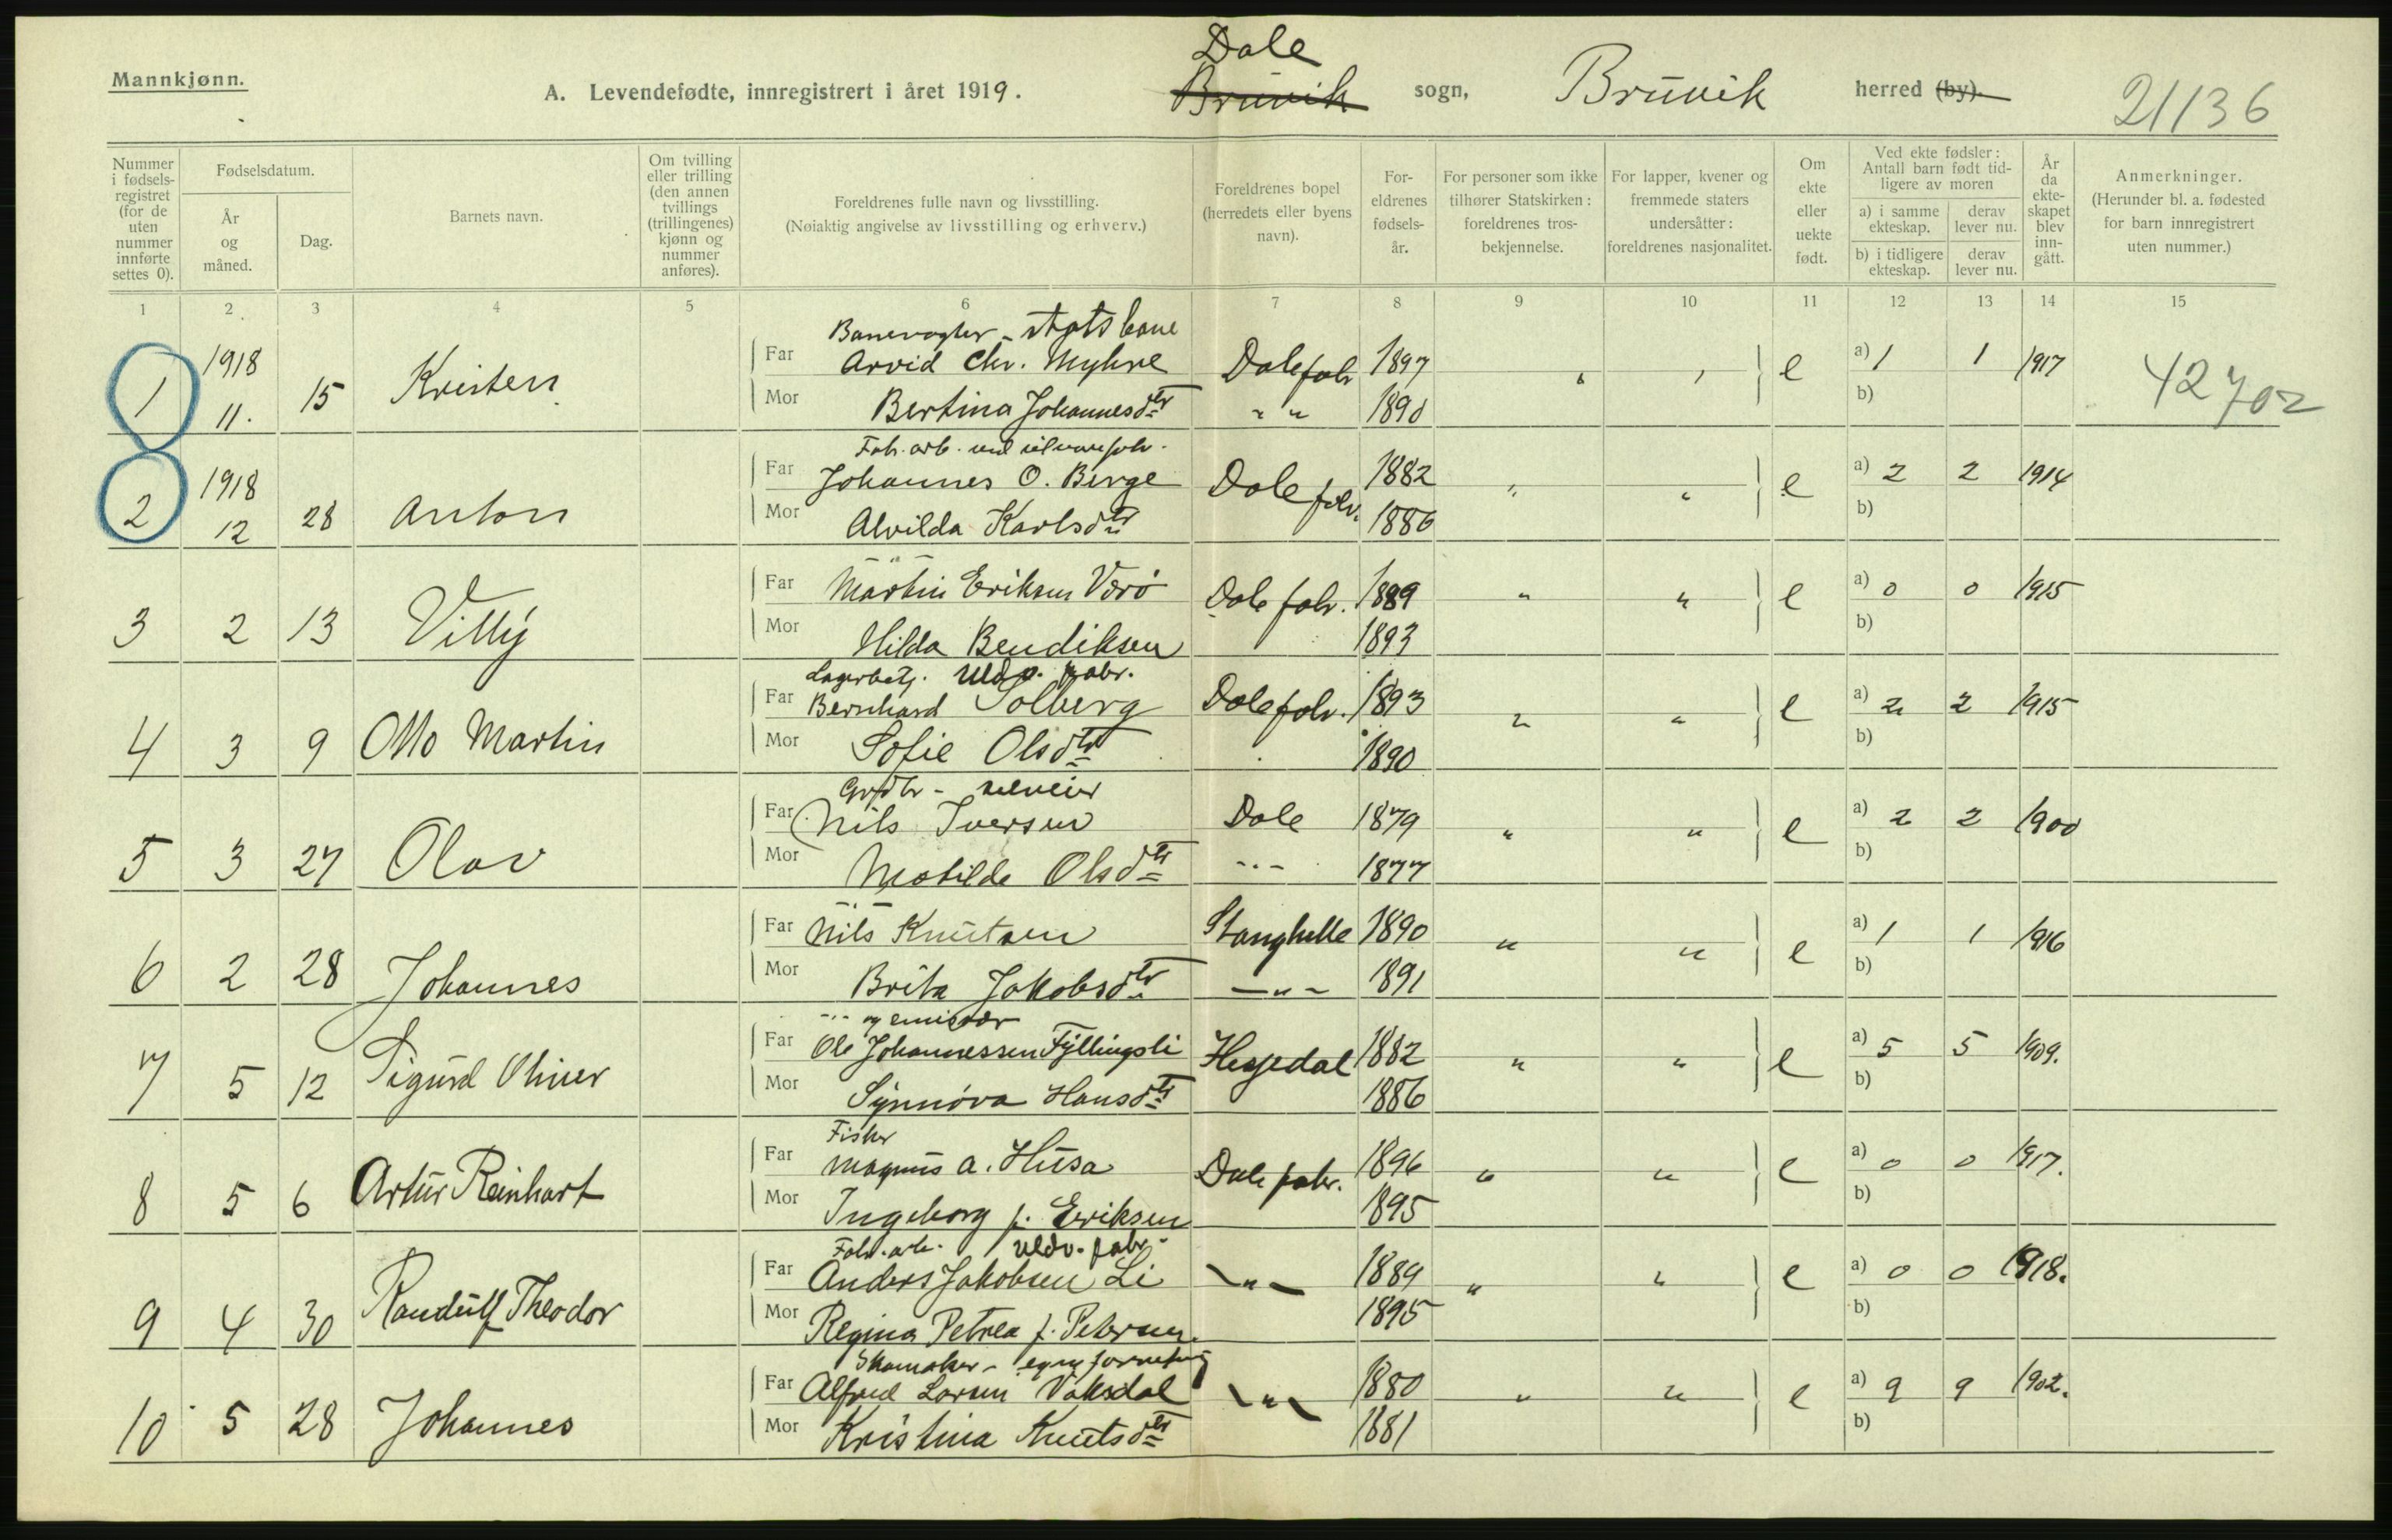 Mannkjønn.
A. Levendefødte, innregistrert i året 1919.
Dale
Bruvik sogn, Bruvik herred (by).
21136
Nummer i fødselsregistret (for de uten nummer innførte settes 0).
Fødselsdatum.
År og måned.
Dag.
Barnets navn.
Om tvilling eller trilling (den annen tvillings (trillingenes) kjønn og nummer anføres).
Foreldrenes fulle navn og livsstilling.
(Nøiaktig angivelse av livsstilling og erhverv.)
Foreldrenes bopel (herredets eller byens navn).
Foreldrenes fødselsår.
For personer som ikke tilhører Statskirken: foreldrenes trosbekjennelse.
For lapper, kvener og fremmede staters undersåtter: foreldrenes nasjonalitet.
Om ekte eller uekte født.
Ved ekte fødsler: Antall barn født tidligere av moren
a) i samme ekteskap. derav lever nu.
b) i tidligere ekteskap. derav lever nu.
År da ekteskapet blev inngått.
Anmerkninger.
(Herunder bl. a. fødested for barn innregistrert uten nummer.)
1 2 3 4 5 6 7 8 9 10 11 12 13 14 15
Banevogter - statsbane
1 1918 11. 15 Kristen Far Arvid Chr. Myhre Dale fabr 1897 " " e a) 1 1 1917 42702
Mor Bertina Johannesdtr " " 1890 b)
Fab. arb. ved uldvarefabr.
2 1918 12 28 Anton Far Johannes O. Berge Dale fabr. 1882 " " e a) 2 2 1914
Mor Alvilda Karlsdtr 1886 b)
— " —
3 2 13 Villy Far Martin Eriksen Værö Dale fabr. 1889 " " e a) 0 0 1915
Mor Hilda Bendiksen 1893 b)
Lagerbetj. Uldv. fabr.
4 3 9 Otto Martin Far Bernhard Solberg Dale fabr. 1893 " " e a) 2 2 1915
Mor Sofie Olsdtr 1890 b)
Grdbr - selveier
5 3 27 Olav Far Nils Iversen Dale 1879 " " e a) 2 2 1900
Mor Matilde Olsdtr -"- 1877 b)
— " —
6 2 28 Johannes Far Nils Knutsen Stanghelle 1890 " " e a) 1 1 1916
Mor Brita Jakobsdtr -"- 1891 b)
-"- og emisær
7 5 12 Sigurd Oliver Far Ole Johannessen Fyllingsli Hesjedal 1882 " " e a) 5 5 1909.
Mor Synnöva Hansdtr 1886 b)
Fisker
8 5 6 Artur Reinhart Far Magnus A. Husa Dale fabr. 1896 " " e a) 0 0 1917.
Mor Ingeborg f. Eriksen 1895 b)
Fabr. arb. Uldv. fabr.
9 4 30 Randulf Theodor Far Anders Jakobsen Li -"- 1889 " " e a) 0 0 1918.
Mor Regina Petrea f. Petersen. 1895 b)
Skomaker - egen forretning
10 5 28 Johannes Far Alfred Larsen Vaksdal -"- 1880 " " e a) 9 9 1902.
Mor Kristina Knutsdtr 1881 b)